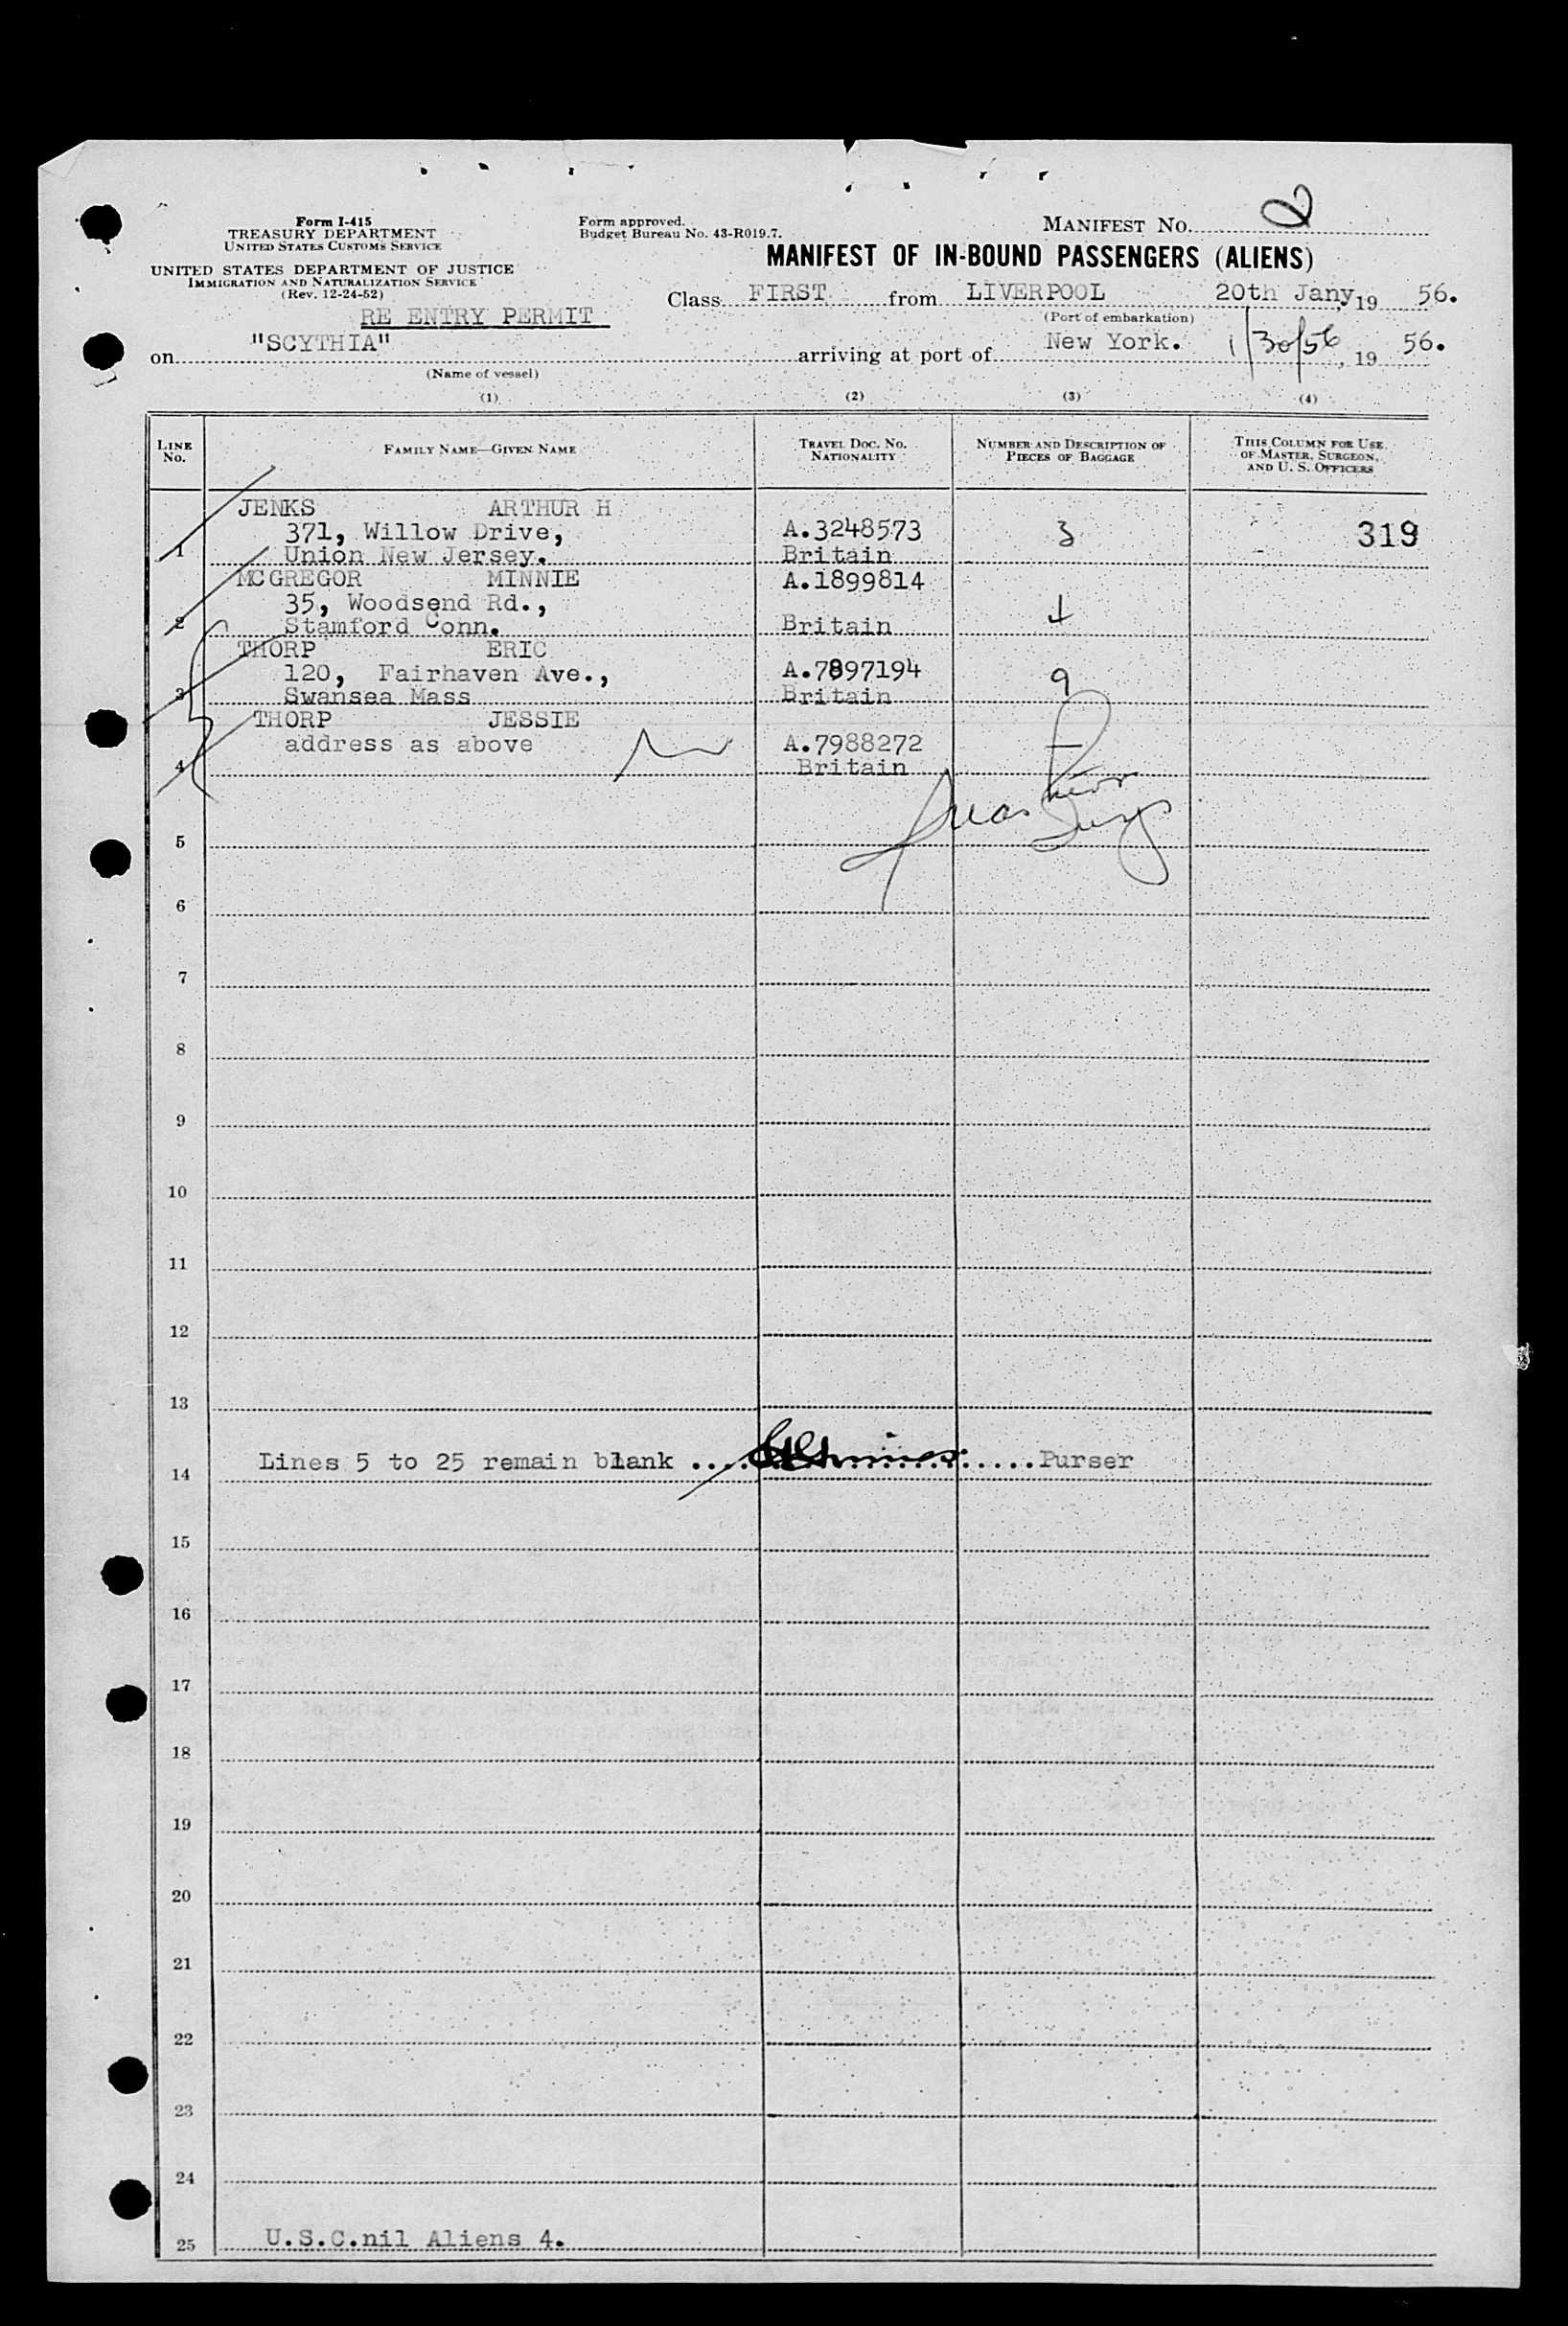 Form I-415
TREASURY DEPARTMENT
UNITED STATES CUSTOMS SERVICE
UNITED STATES DEPARTMENT OF JUSTICE
IMMIGRATION AND NATURALIZATION SERVICE
(Rev. 12-24-52)
Form approved.
Budget Bureau No. 43-R019.7.
MANIFEST No. 2
MANIFEST OF IN-BOUND PASSENGERS (ALIENS)
Class FIRST from LIVERPOOL 20th Jany, 19 56.
(Port of embarkation)
RE ENTRY PERMIT
on "SCYTHIA" arriving at port of New York. 1/30/56, 19 56.
(Name of vessel)
(1) (2) (3) (4)
LINE No. FAMILY NAME—GIVEN NAME TRAVEL DOC. NO. NATIONALITY NUMBER AND DESCRIPTION OF PIECES OF BAGGAGE THIS COLUMN FOR USE OF MASTER, SURGEON, AND U. S. OFFICERS
JENKS ARTHUR H
371, Willow Drive, A.3248573 3 319
1 Union New Jersey. Britain
MCGREGOR MINNIE A.1899814
35, Woodsend Rd.,
2 Stamford Conn. Britain
THORP ERIC
120, Fairhaven Ave., A.7897194 9
3 Swansea Mass Britain
THORP JESSIE
address as above A.7988272 —
4 Britain
5
6
7
8
9
10
11
12
13
Lines 5 to 25 remain blank .... ..... Purser
14
15
16
17
18
19
20
21
22
23
24
25 U.S.C.nil Aliens 4.